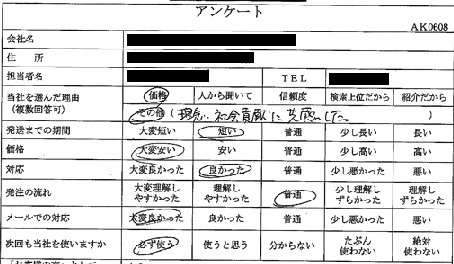 アンケート
AK0608
会社名
住 所
担当者名 TEL
当社を選んだ理由 価格 人から聞いて 信頼度 検索上位だから 紹介だから
(複数回答可) その他 ( 環境、社会貢献に共感した。 )
発送までの期間 大変短い 短い 普通 少し長い 長い
価格 大変安い 安い 普通 少し高い 高い
対応 大変良かった 良かった 普通 少し悪かった 悪い
発注の流れ 大変理解しやすかった 理解しやすかった 普通 少し理解しずらかった 理解しずらかった
メールでの対応 大変良かった 良かった 普通 少し悪かった 悪い
次回も当社を使いますか 必ず使う 使うと思う 分からない たぶん使わない 絶対使わない